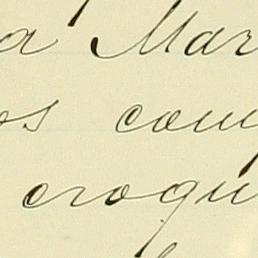 a Mar
os com
croqu